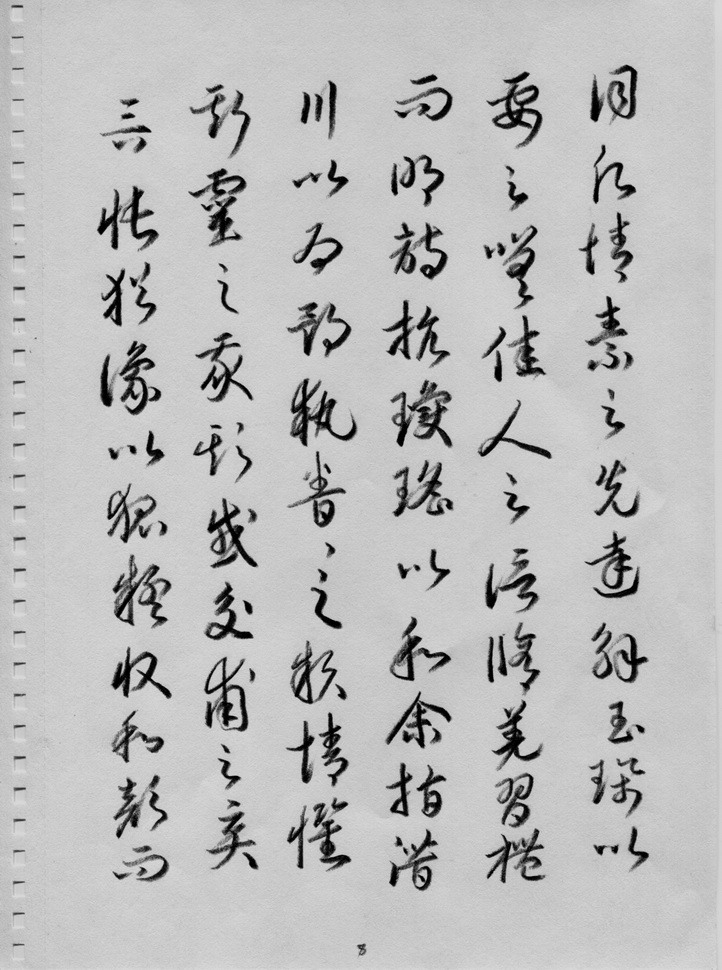 情素之先達解玉珮以
要之嗟佳人之信脩羌習禮
而明詩抗瓊瑤以和余指潛
川以為期執眷〻之款情懼
斯靈之我欺感交甫之棄
言悵猶豫以狐疑收和顏而
8